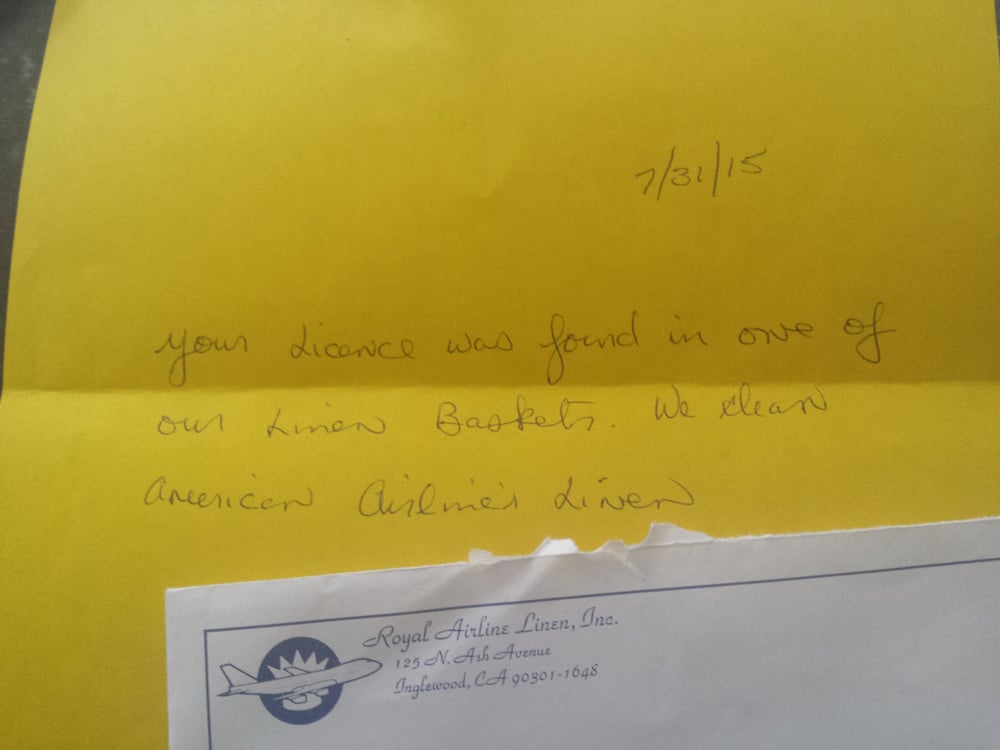 7/31/15
your Licence was found in one of
our Linen Baskets. We clean
American Airline's Linen
Royal Airline Linen, Inc.
125 N. Ash Avenue
Inglewood, CA 90301-1648